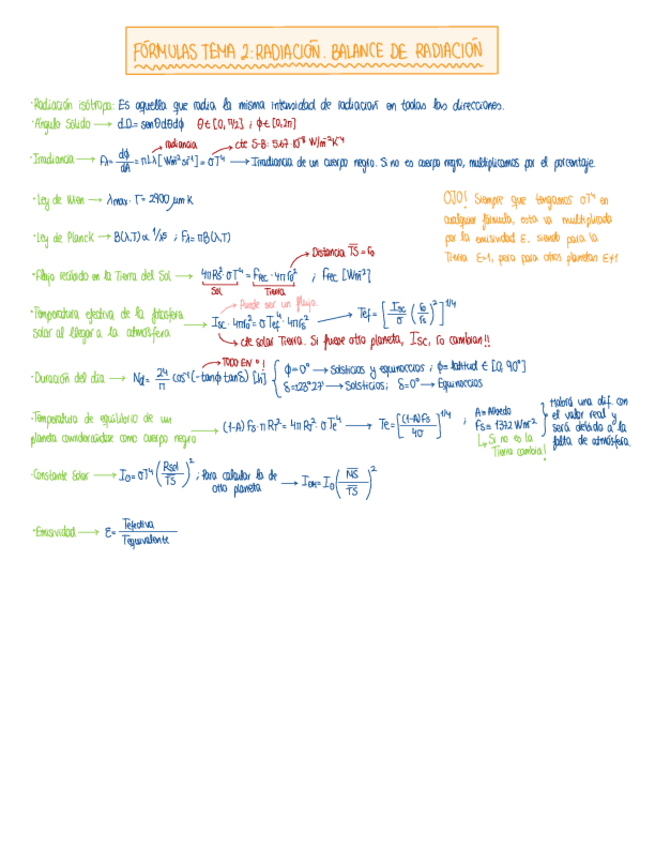 FÓRMULAS TEMA 2: RADIACIÓN. BALANCE DE RADIACIÓN
·Radiación isótropa: Es aquella que radia la misma intensidad de radiación en todas las direcciones.
·Ángulo Sólido → dΩ = senθdθdϕ θ∈[0, π/2] ; ϕ∈[0,2π]
radiancia
cte S-B: 5.67·10⁻⁸ W/m⁻²K⁻⁴
·Irradiancia → Fλ = dϕ/dA = πLλ [Wm⁻²sr⁻¹] = σT⁴ → Irradiancia de un cuerpo negro. Si no es cuerpo negro, multiplicamos por el porcentaje.
·Ley de Wien → λmax · T = 2900 μm K
OJO! Siempre que tengamos σT⁴ en
cualquier fórmula, esta va multiplicada
por la emisividad ε, siendo para la
Tierra ε=1, pero para otros planetas ε≠1
·Ley de Planck → B(λ,T) ∝ 1/λ⁵ ; Fλ = πB(λ,T)
Distancia TS = r₀
·Flujo recibido en la Tierra del Sol → 4πRs² σT⁴ = Frec · 4πr₀² ; Frec [Wm⁻²]
Sol
Tierra
Puede ser un flujo.
·Temperatura efectiva de la fotosfera
solar al llegar a la atmósfera → Isc · 4πr₀² = σTef⁴ · 4πrs² → Tef = [Isc/σ (r₀/rs)²]^1/4
cte solar Tierra. Si fuese otro planeta, Isc, r₀ cambian!!
TODO EN º !
·Duración del día → Nd = 24/π cos⁻¹(-tanϕ tanδ) [h]
ϕ=0° → Solsticios y equinoccios ; ϕ = latitud ∈ [0, 90°]
δ=±23°27' → Solsticios; δ=0° → Equinoccios
·Temperatura de equilibrio de un
planeta considerándose como cuerpo negro → (1-A) Fs · π Rt² = 4π Rt² · σ Te⁴ → Te = [(1-A)Fs/4σ]^1/4 ;
A = Albedo
Fs = 1372 Wm⁻²
Si no es la
Tierra cambia!
Habrá una dif. con
el valor real y
será debido a la
falta de atmósfera.
·Constante Solar → I₀ = σT⁴ (Rsol/TS)² ; Para calcular la de
otro planeta → I₀M = I₀ (MS/TS)²
·Emisividad → ε = Tefectiva/Tequivalente